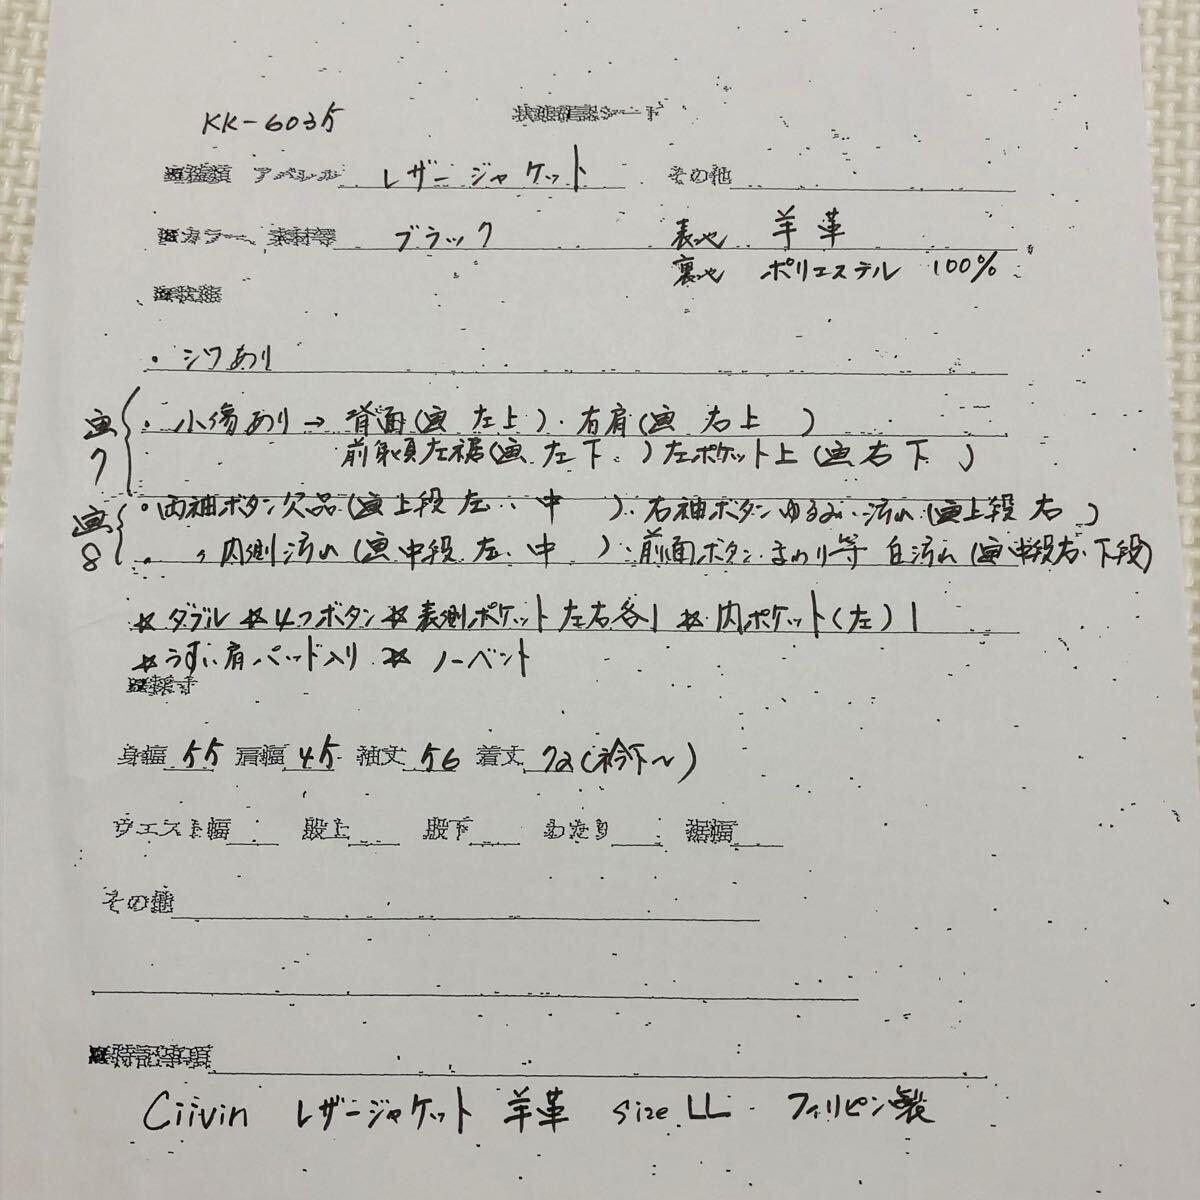 KK-6035
状態確認シート
※種類 アパレル レザージャケット その他
※カラー、素材等 ブラック 表地 羊革
裏地 ポリエステル 100%
※状態
・シワあり
画7 ・小傷あり→背面(画 左上)・右肩(画 右上 )
前身頃左裾(画 左下 )左ポケット上(画右下 )
画8 ・両袖ボタン欠品(画上段 左、中 )、右袖ボタンゆるみ、汚れ(画上段 右 )
・ 〃 内側汚れ(画中段 左、中 )、前面ボタンまわり等 白汚れ(画中段右、下段)
☆ダブル ☆4つボタン ☆表側ポケット 左右各1 ☆内ポケット(左)1
☆うすい肩パッド入り ☆ノーベント
※採寸
身幅 55 肩幅 45 袖丈 56 着丈 72(衿下〜)
ウエスト幅 股上 股下 わたり 裾幅
その他
※特記事項
Ciivin レザージャケット 羊革 size LL フィリピン製